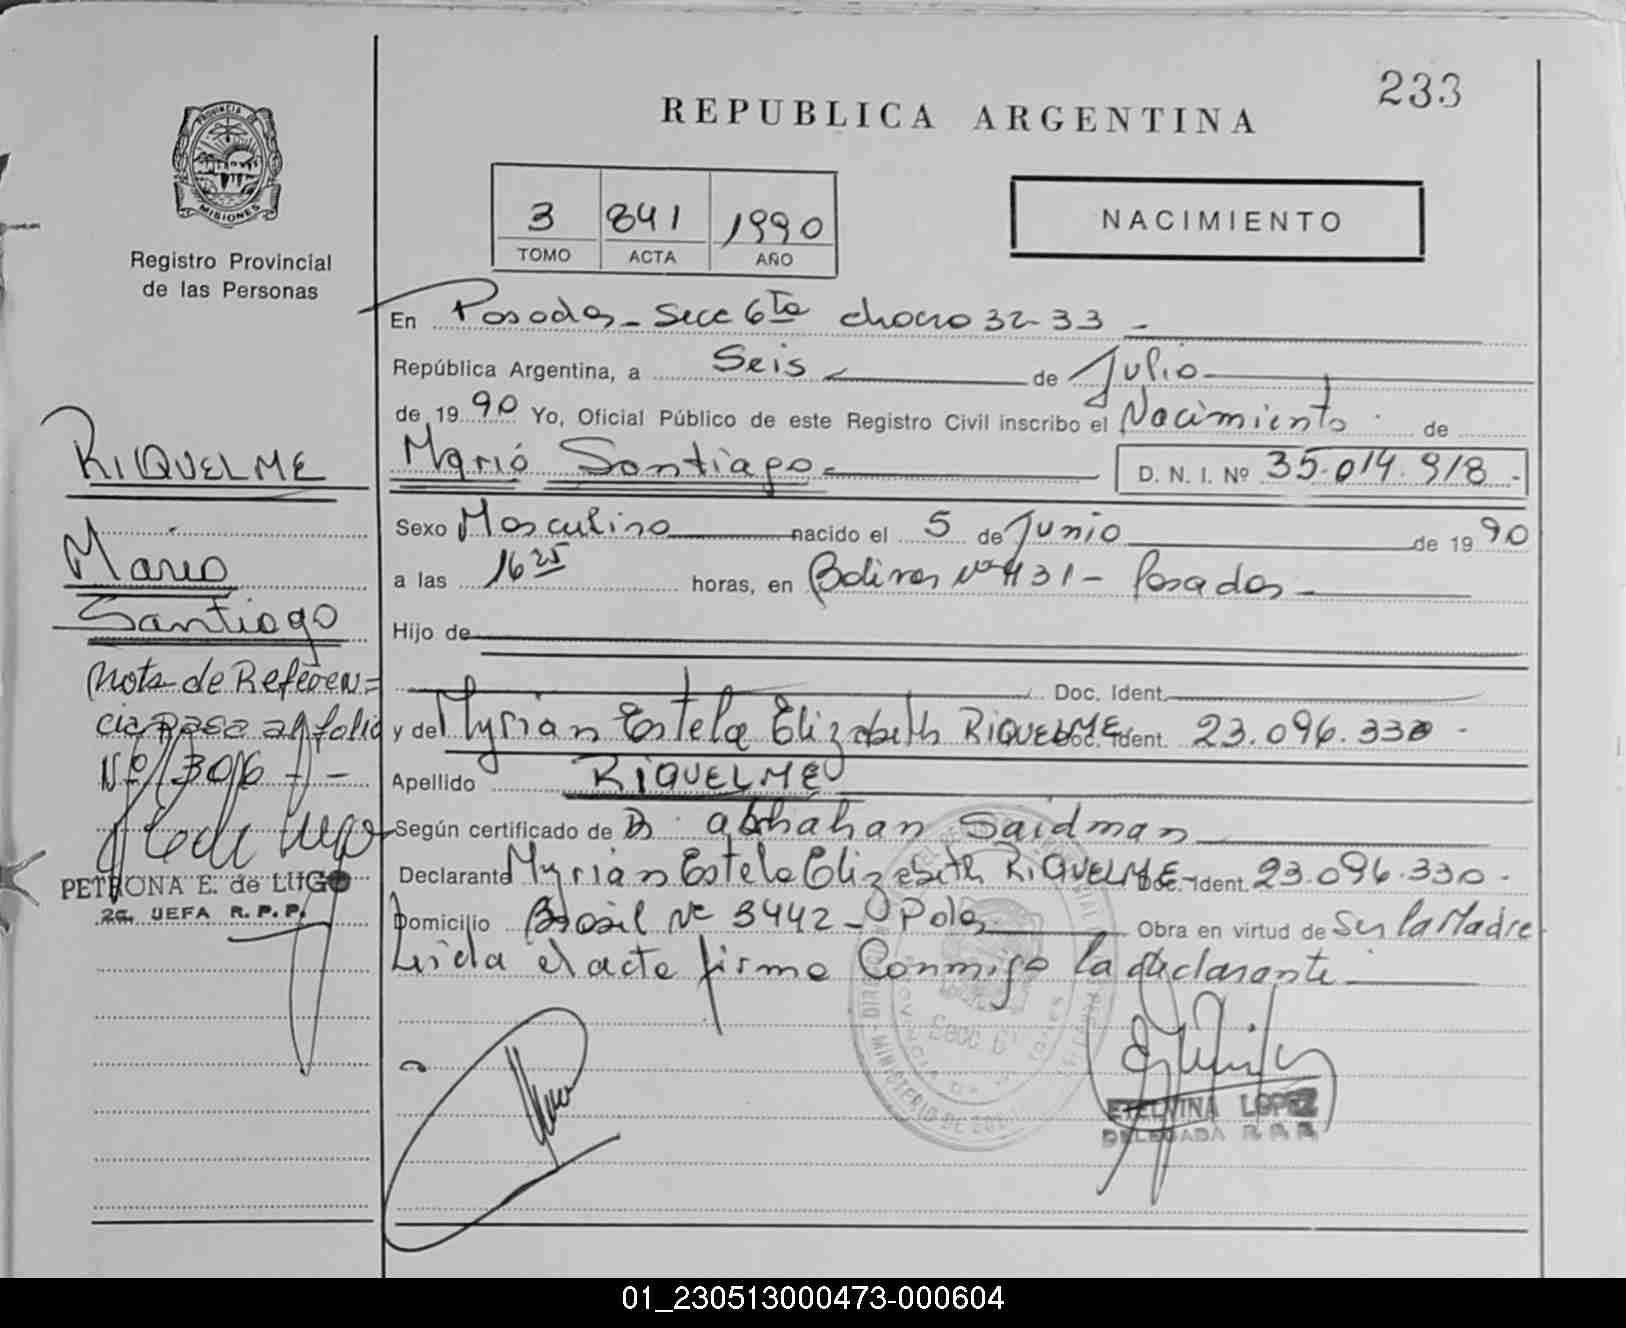 233
REPUBLICA ARGENTINA
PROVINCIA DE
MISIONES
Registro Provincial
de las Personas
3 841 1990
TOMO ACTA AÑO
NACIMIENTO
En Posadas - Secc 6ta chacra 32-33 -
República Argentina, a Seis de Julio
de 1990 Yo, Oficial Público de este Registro Civil inscribo el Nacimiento de
Mario Santiago D. N. I. Nº 35.014.918 -
Sexo Masculino nacido el 5 de Junio de 1990
a las 16 25 horas, en Bolivar Nº 431 - Posadas
Hijo de
Doc. Ident.
y de Myrian Estela Elizabeth RIQUELME Doc. Ident. 23.096.330 -
Apellido RIQUELME
Según certificado de D. Abrahan Saidman
Declarante Myrian Estela Elizabeth RIQUELME Doc. Ident. 23.096.330 -
Domicilio Brasil Nº 3442 - Pdas Obra en virtud de Ser la Madre
Leida el acta firma Conmigo la declarante
Secc 6
ETELVINA LOPEZ
DELEGADA R.P.P.
RIQUELME
Mario
Santiago
Nota de Referen=
cia pasa al folio
Nº 1306 - -
PETRONA E. de LUGO
2a. JEFA R. P. P.
01_230513000473-000604